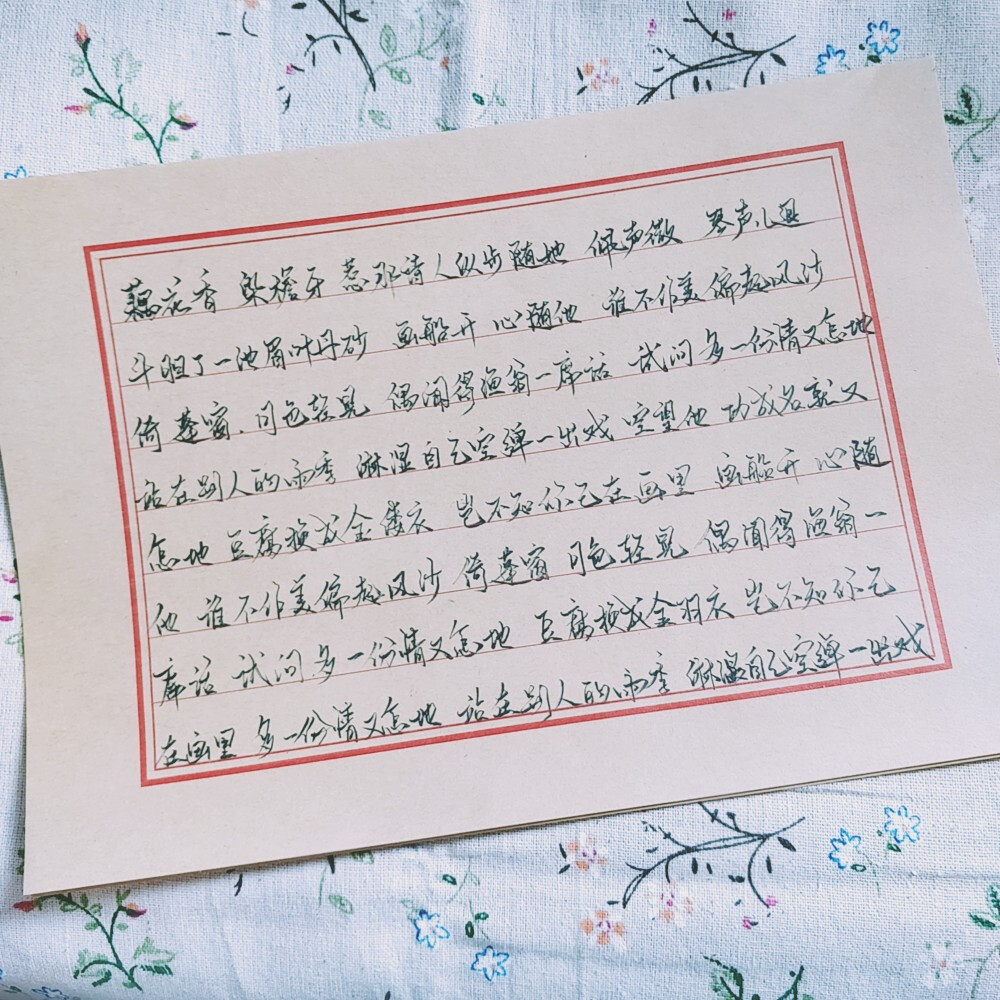 藕花香 染檐牙 惹那诗人纵步随她 佩声微 琴声儿退
斗胆了一池眉叶丹砂 画船开 心随他 谁不作美偏起风沙
倚篷窗 月色轻晃 偶闻得渔翁一席话 试问多一份情又怎地
站在别人的雨季 淋湿自己空弹一出戏 空望他 功成名就又
怎地 豆腐换成金缕衣 岂不知你己在画里 画船开 心随
他 谁不作美偏起风沙 倚篷窗 月色轻晃 偶闻得渔翁一
席话 试问多一份情又怎地 豆腐换成金羽衣 岂不知你己
在画里 多一份情又怎地 站在别人的雨季 淋湿自己空弹一出戏